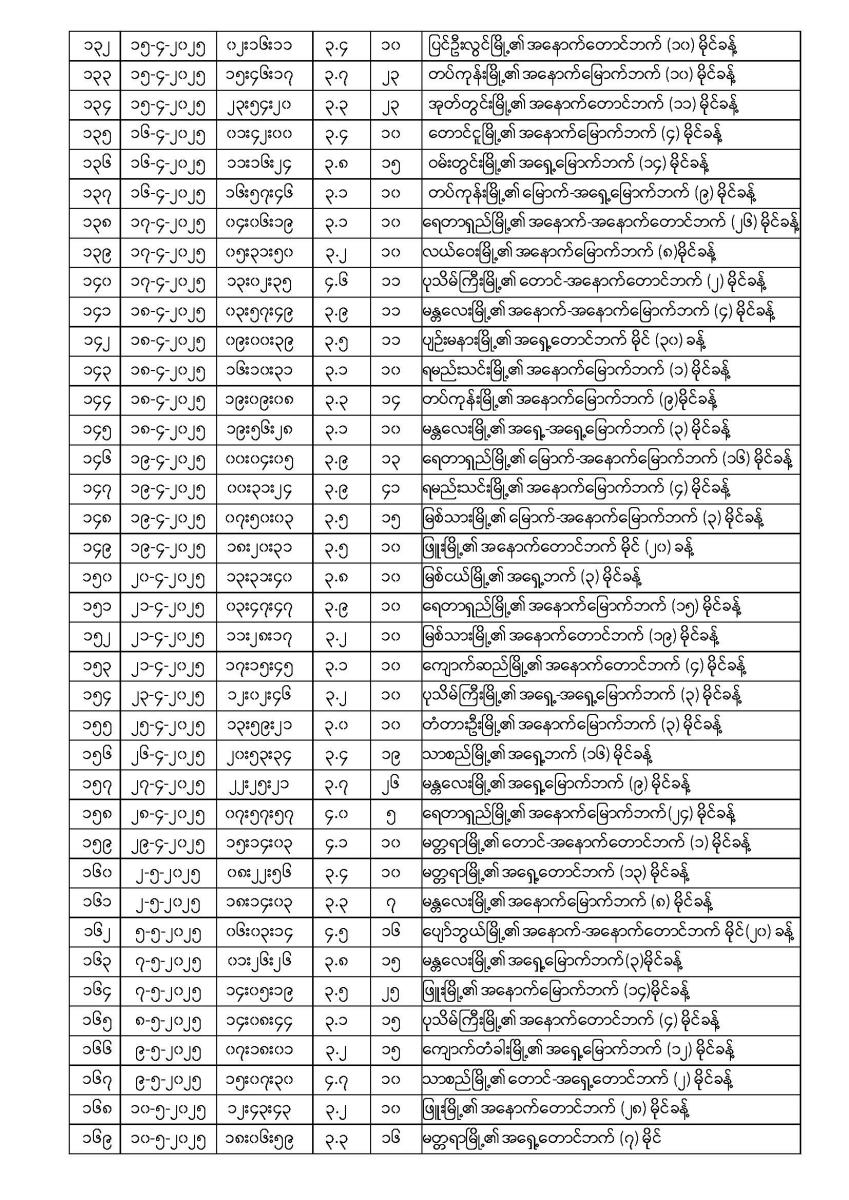 ၁၃၂ ၁၅-၄-၂၀၂၅ ၀၂း၁၆း၁၁ ၃.၄ ၁၀ ပြင်ဦးလွင်မြို့၏ အနောက်တောင်ဘက် (၁၀) မိုင်ခန့်
၁၃၃ ၁၅-၄-၂၀၂၅ ၁၅း၄၆း၁၇ ၃.၇ ၂၃ တပ်ကုန်းမြို့၏ အနောက်မြောက်ဘက် (၁၀) မိုင်ခန့်
၁၃၄ ၁၅-၄-၂၀၂၅ ၂၃း၅၄း၂၀ ၃.၃ ၂၃ အုတ်တွင်းမြို့၏ အနောက်တောင်ဘက် (၁၁) မိုင်ခန့်
၁၃၅ ၁၆-၄-၂၀၂၅ ၀၁း၄၂း၀၀ ၃.၄ ၁၀ တောင်ငူမြို့၏ အနောက်မြောက်ဘက် (၄) မိုင်ခန့်
၁၃၆ ၁၆-၄-၂၀၂၅ ၁၁း၁၆း၂၄ ၃.၈ ၁၅ ဝမ်းတွင်းမြို့၏ အရှေ့မြောက်ဘက် (၁၄) မိုင်ခန့်
၁၃၇ ၁၆-၄-၂၀၂၅ ၁၆း၅၇း၄၆ ၃.၁ ၁၀ တပ်ကုန်းမြို့၏ မြောက်-အရှေ့မြောက်ဘက် (၉) မိုင်ခန့်
၁၃၈ ၁၇-၄-၂၀၂၅ ၀၄း၀၆း၁၉ ၃.၁ ၁၀ ရေတာရှည်မြို့၏ အနောက်-အနောက်တောင်ဘက် (၂၆) မိုင်ခန့်
၁၃၉ ၁၇-၄-၂၀၂၅ ၀၅း၃၁း၅၀ ၃.၂ ၁၀ လယ်ဝေးမြို့၏ အနောက်မြောက်ဘက် (၈)မိုင်ခန့်
၁၄၀ ၁၇-၄-၂၀၂၅ ၁၃း၀၂း၃၅ ၄.၆ ၁၁ ပုသိမ်ကြီးမြို့၏ တောင်-အနောက်တောင်ဘက် (၂) မိုင်ခန့်
၁၄၁ ၁၈-၄-၂၀၂၅ ၀၃း၅၇း၄၉ ၃.၉ ၁၁ မန္တလေးမြို့၏ အနောက်-အနောက်မြောက်ဘက် (၄) မိုင်ခန့်
၁၄၂ ၁၈-၄-၂၀၂၅ ၀၉း၀၀း၃၉ ၃.၅ ၁၁ ပျဉ်းမနားမြို့၏ အရှေ့တောင်ဘက် မိုင် (၃၀) ခန့်
၁၄၃ ၁၈-၄-၂၀၂၅ ၁၆း၁၀း၃၁ ၃.၁ ၁၀ ရမည်းသင်းမြို့၏ အနောက်မြောက်ဘက် (၁) မိုင်ခန့်
၁၄၄ ၁၈-၄-၂၀၂၅ ၁၉း၀၉း၀၈ ၃.၃ ၁၄ တပ်ကုန်းမြို့၏ အနောက်မြောက်ဘက် (၉)မိုင်ခန့်
၁၄၅ ၁၈-၄-၂၀၂၅ ၁၉း၅၆း၂၈ ၃.၁ ၁၀ မန္တလေးမြို့၏ အရှေ့-အရှေ့မြောက်ဘက် (၃) မိုင်ခန့်
၁၄၆ ၁၉-၄-၂၀၂၅ ၀၀း၀၄း၀၅ ၃.၉ ၁၃ ရေတာရှည်မြို့၏ မြောက်-အနောက်မြောက်ဘက် (၁၆) မိုင်ခန့်
၁၄၇ ၁၉-၄-၂၀၂၅ ၀၀း၃၁း၂၄ ၃.၉ ၄၁ ရမည်းသင်းမြို့၏ အနောက်မြောက်ဘက် (၄) မိုင်ခန့်
၁၄၈ ၁၉-၄-၂၀၂၅ ၀၇း၅၀း၀၃ ၃.၅ ၁၅ မြစ်သားမြို့၏ မြောက်-အနောက်မြောက်ဘက် (၃) မိုင်ခန့်
၁၄၉ ၁၉-၄-၂၀၂၅ ၁၈း၂၀း၃၁ ၃.၅ ၁၀ ဖြူးမြို့၏ အနောက်တောင်ဘက် မိုင် (၂၀) ခန့်
၁၅၀ ၂၀-၄-၂၀၂၅ ၁၃း၃၁း၄၀ ၃.၈ ၁၀ မြစ်ငယ်မြို့၏ အရှေ့ဘက် (၃) မိုင်ခန့်
၁၅၁ ၂၁-၄-၂၀၂၅ ၀၃း၄၇း၄၇ ၃.၉ ၁၀ ရေတာရှည်မြို့၏ အနောက်မြောက်ဘက် (၁၅) မိုင်ခန့်
၁၅၂ ၂၁-၄-၂၀၂၅ ၁၁း၂၈း၁၇ ၃.၂ ၁၀ မြစ်သားမြို့၏ အနောက်တောင်ဘက် (၁၉) မိုင်ခန့်
၁၅၃ ၂၁-၄-၂၀၂၅ ၁၇း၁၅း၄၅ ၃.၁ ၁၀ ကျောက်ဆည်မြို့၏ အနောက်တောင်ဘက် (၄) မိုင်ခန့်
၁၅၄ ၂၃-၄-၂၀၂၅ ၁၂း၀၂း၄၆ ၃.၂ ၁၀ ပုသိမ်ကြီးမြို့၏ အရှေ့-အရှေ့မြောက်ဘက် (၃) မိုင်ခန့်
၁၅၅ ၂၅-၄-၂၀၂၅ ၁၃း၅၉း၂၁ ၃.၀ ၁၀ တံတားဦးမြို့၏ အနောက်တောင်ဘက် (၃) မိုင်ခန့်
၁၅၆ ၂၆-၄-၂၀၂၅ ၂၀း၅၃း၃၄ ၃.၄ ၁၉ သာစည်မြို့၏ အရှေ့ဘက် (၁၆) မိုင်ခန့်
၁၅၇ ၂၇-၄-၂၀၂၅ ၂၂း၂၅း၂၁ ၃.၇ ၂၆ မန္တလေးမြို့၏ အရှေ့မြောက်ဘက် (၉) မိုင်ခန့်
၁၅၈ ၂၈-၄-၂၀၂၅ ၀၇း၅၇း၅၇ ၄.၀ ၅ ရေတာရှည်မြို့၏ အနောက်မြောက်ဘက်(၂၄) မိုင်ခန့်
၁၅၉ ၂၉-၄-၂၀၂၅ ၁၅း၁၄း၀၃ ၄.၁ ၁၀ မတ္တရာမြို့၏ တောင်-အနောက်တောင်ဘက် (၁) မိုင်ခန့်
၁၆၀ ၂-၅-၂၀၂၅ ၀၈း၂၂း၅၆ ၃.၄ ၁၀ မတ္တရာမြို့၏ အရှေ့တောင်ဘက် (၁၃) မိုင်ခန့်
၁၆၁ ၂-၅-၂၀၂၅ ၁၈း၁၄း၀၃ ၃.၃ ၇ မန္တလေးမြို့၏ အနောက်မြောက်ဘက် (၈) မိုင်ခန့်
၁၆၂ ၅-၅-၂၀၂၅ ၀၆း၀၃း၁၄ ၄.၅ ၁၆ ပျော်ဘွယ်မြို့၏ အနောက်-အနောက်တောင်ဘက် မိုင်(၂၀) ခန့်
၁၆၃ ၇-၅-၂၀၂၅ ၀၁း၂၆း၂၆ ၃.၈ ၁၅ မန္တလေးမြို့၏ အရှေ့မြောက်ဘက်(၃)မိုင်ခန့်
၁၆၄ ၇-၅-၂၀၂၅ ၁၄း၀၅း၁၉ ၃.၅ ၂၅ ဖြူးမြို့၏ အနောက်မြောက်ဘက် (၁၄)မိုင်ခန့်
၁၆၅ ၈-၅-၂၀၂၅ ၁၄း၀၈း၄၄ ၃.၁ ၁၅ ပုသိမ်ကြီးမြို့၏ အနောက်တောင်ဘက် (၄) မိုင်ခန့်
၁၆၆ ၉-၅-၂၀၂၅ ၀၇း၁၈း၀၁ ၃.၂ ၁၅ ကျောက်တံခါးမြို့၏ အရှေ့မြောက်ဘက် (၁၂) မိုင်ခန့်
၁၆၇ ၉-၅-၂၀၂၅ ၁၅း၀၇း၃၀ ၄.၇ ၁၀ သာစည်မြို့၏ တောင်-အရှေ့တောင်ဘက် (၂) မိုင်ခန့်
၁၆၈ ၁၀-၅-၂၀၂၅ ၁၂း၄၃း၄၃ ၃.၂ ၁၀ ဖြူးမြို့၏ အနောက်တောင်ဘက် (၂၈) မိုင်ခန့်
၁၆၉ ၁၀-၅-၂၀၂၅ ၁၈း၀၆း၅၉ ၃.၃ ၁၆ မတ္တရာမြို့၏ အရှေ့တောင်ဘက် (၇) မိုင်